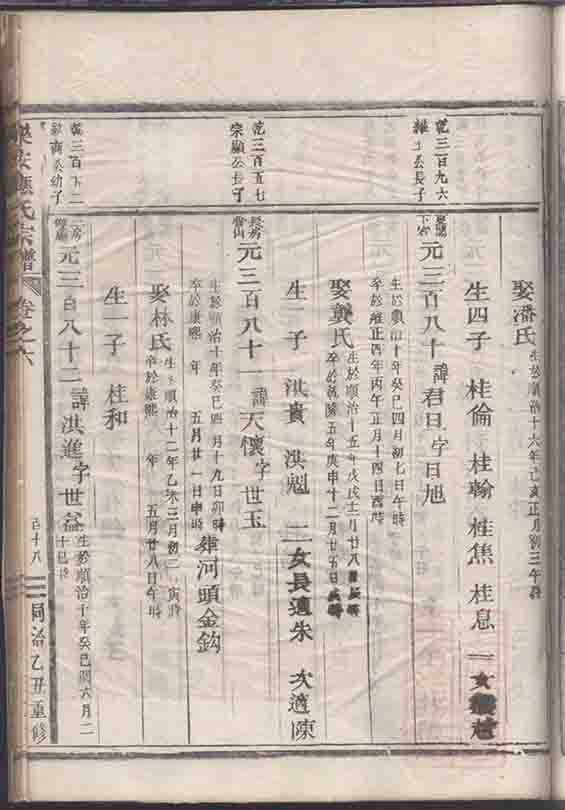 娶潘氏
生於順治十六年己亥正月初三午時
生四子 桂倫 桂翰 桂焦 桂息 一女
乾三百九六
公長子
元三百八十 諱君日字日旭
生於順治十年癸巳四月初七日午時
卒於雍正四年丙午正月十四日酉時
娶龔氏
生於順治十五年戊戌十二月廿八
卒於乾隆五年庚申十二月廿五日
生一子 洪貴 洪魁 二女長適朱 次適陳
乾三百五七
宗顯公長子
長房
元三百八十一 諱天懷字世玉
生於順治十年癸巳四月十九日卯時
卒於康熙 年 五月廿一日申時
葬河頭金鈎
娶林氏
生於順治十二年乙未三月初二寅時
卒於康熙 年 五月廿八日午時
生一子 桂和
公幼子
元三百八十二 諱洪進字世益
生於順治十年癸巳閏六月二
十巳時
氏宗譜 卷之六 百十八 同治乙丑重修